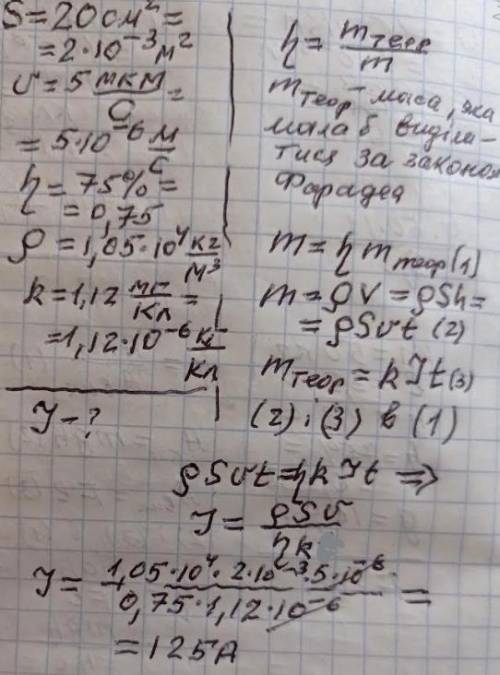 S = 20 см² =
= 2·10⁻³ м²
υ = 5 мкм/с =
= 5·10⁻⁶ м/с
η = 75% =
= 0,75
ρ = 1,05·10⁴ кг/м³
k = 1,12 мг/Кл =
= 1,12·10⁻⁶ кг/Кл
I - ?
η = mтеор/m
mтеор - маса, яка
мала б виділя-
тися за законом
Фарадея
m = η mтеор (1)
m = ρV = ρSh =
= ρSυt (2)
mтеор = kIt (3)
(2) і (3) в (1)
ρSυt = ηkIt ⇒
I = ρSυ/ηk
I = 1,05·10⁴·2·10⁻³·5·10⁻⁶/0,75·1,12·10⁻⁶ =
= 125А